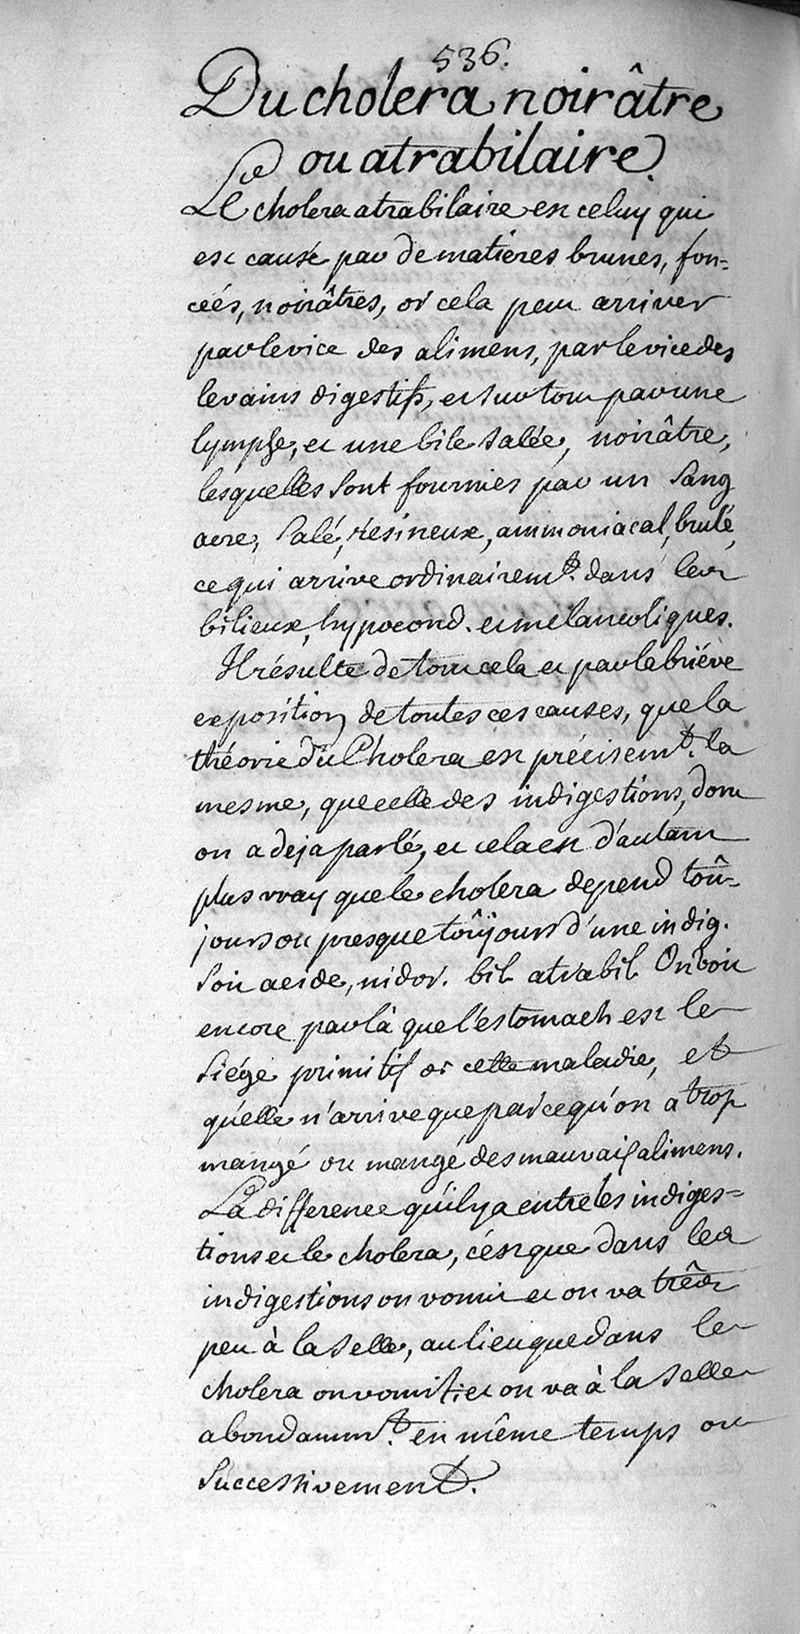 536.
Du cholera noirâtre
ou atrabilaire.
Le cholera atrabilaire est celuy qui
est causé par de matieres brunes, fon=
cées, noirâtres, or cela peut arriver
par le vice des alimens, par le vice des
levains digestifs, et surtout par une
lymphe, et une bile salée, noirâtre,
lesquelles sont fournies par un sang
acre, salé, resineux, ammoniacal, brulé,
ce qui arrive ordinairemt. dans les
bilieux, hypocond. et melancoliques.
Il résulte de tout cela et par la briéve
exposition de toutes ces causes, que la
théorie du Cholera est précisemt. la
mesme, que celle des indigestions, dont
on a deja parlé, et cela est d'autant
plus vray que le cholera depend toû-
jours ou presque toûjours d'une indig.
soit acide, nidor. bil. atrabil. On voit
encore par là que l'estomach est le
siége primitif de cette maladie, et
qu'elle n'arrive que parce qu'on a trop
mangé ou mangé des mauvais alimens.
La difference qu'il y a entre les indiges=
tions et le cholera, c'est que dans les
indigestions on vomit et on va três
peu à la selle, au lieu que dans le
cholera on vomit, et on va à la selle
abondammt. en même temps ou
successivement.